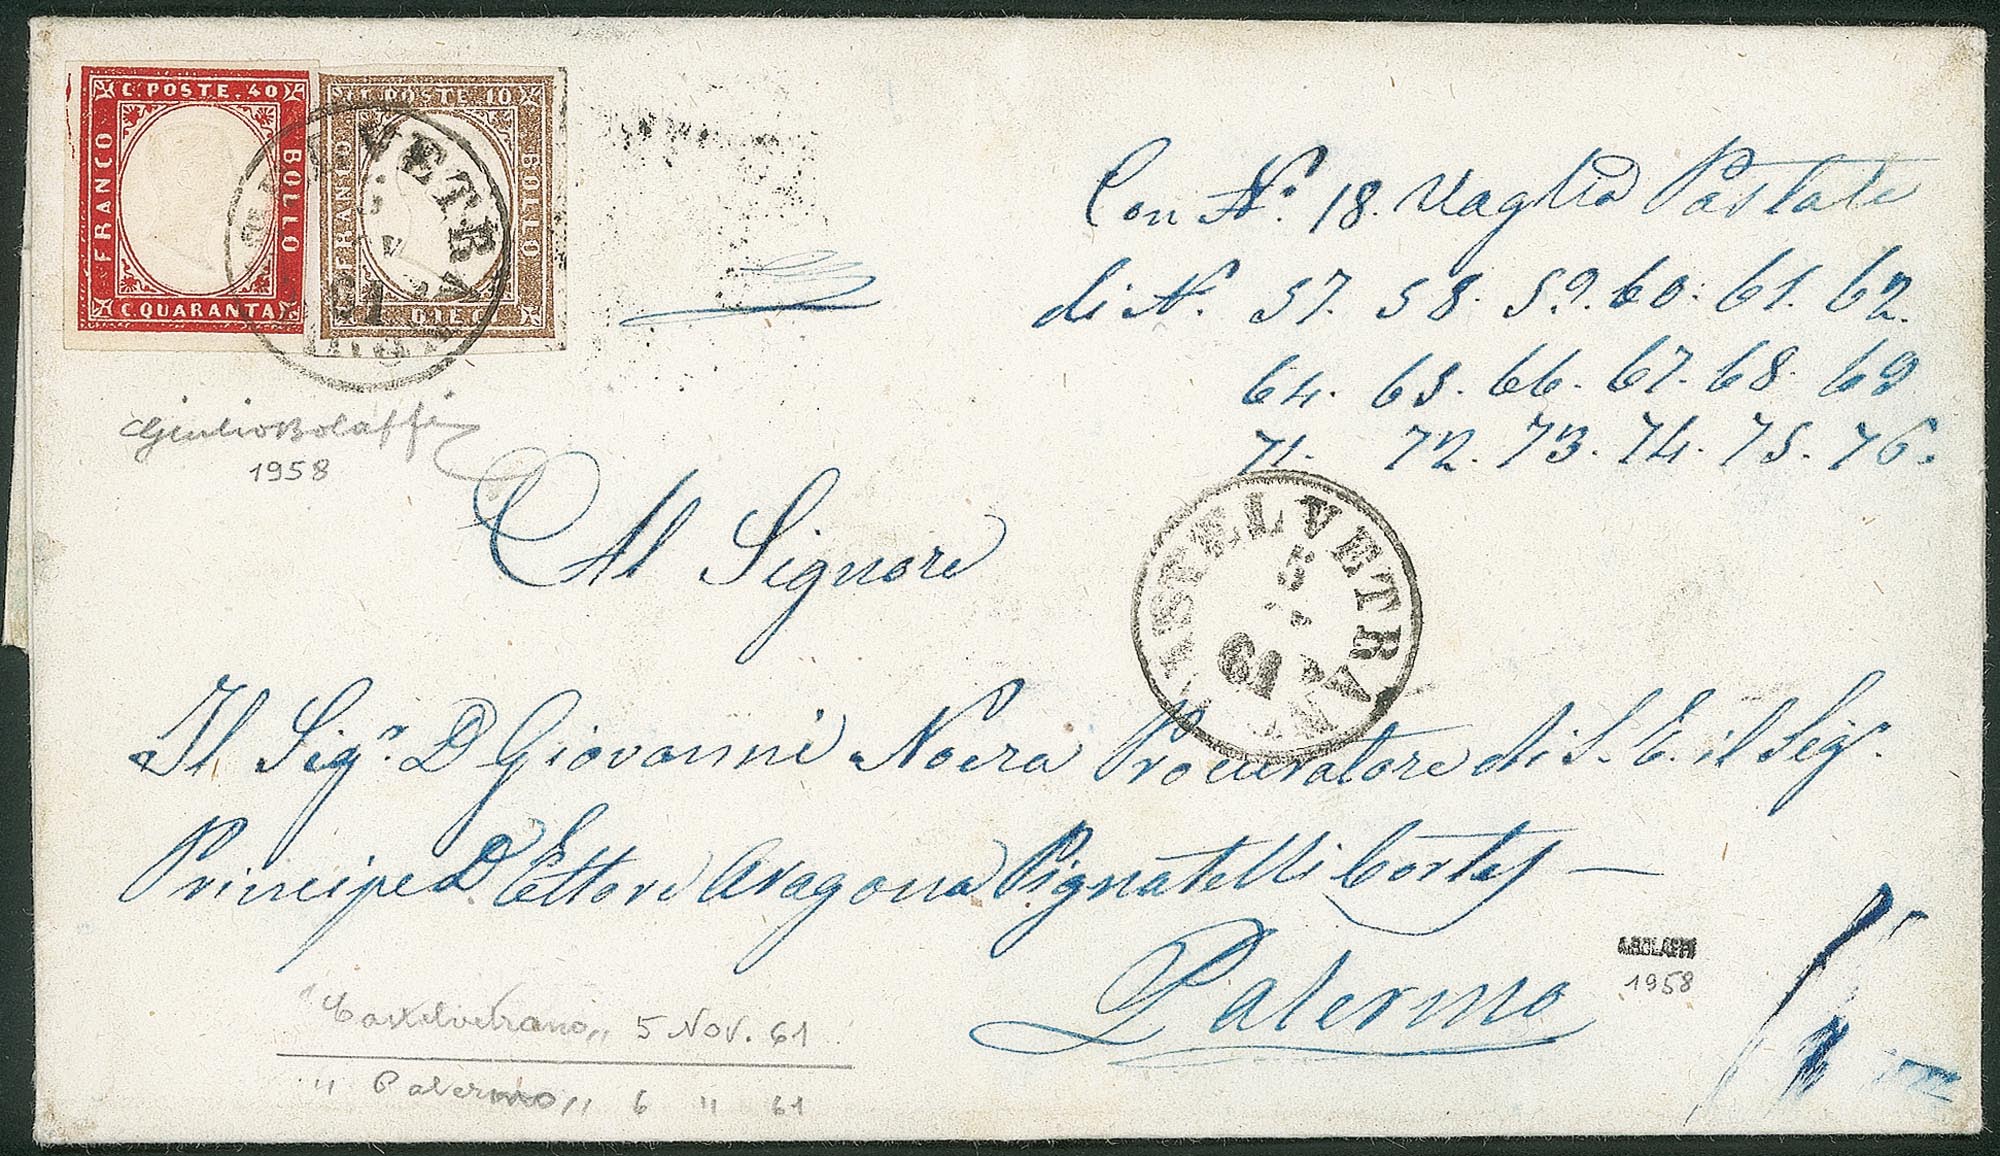 C. POSTE. 40
FRANCO
BOLLO
C. QUARANTA
C. POSTE 10
FRANCO
BOLLO
DIECI
VETRA
61
Con N.º 18. Vaglia Postale
di N. 57. 58. 59. 60. 61. 62.
64. 65. 66. 67. 68. 69
71. 72. 73. 74. 75. 76.
Giulio Bolaffi
1958
Al Signore
CASTELVETRANO
5
61
Il Sigr. D Giovanni Noera Procuratore di S. E. il Sigr.
Principe D Ettore Aragona Pignatelli Cortes —
Palermo
A. BOLAFFI
1958
"Castelvetrano" 5 Nov. 61
"Palermo" 6 " 61